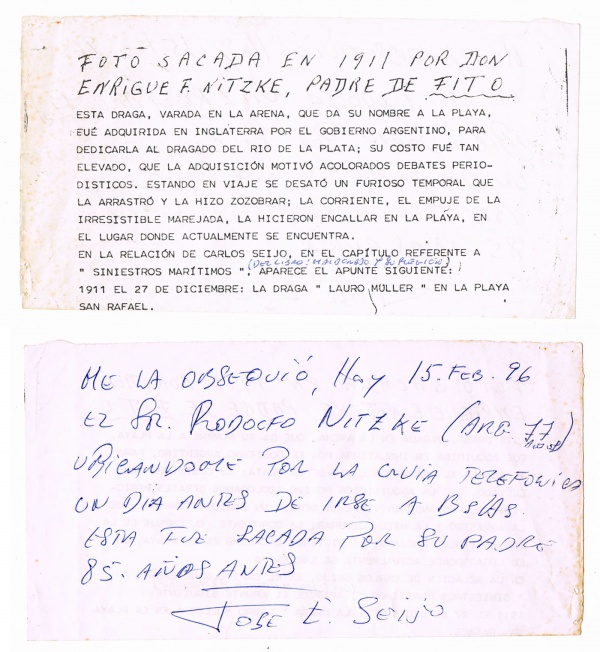 FOTO SACADA EN 1911 POR DON
ENRIQUE F. NITZKE, PADRE DE FITO
ESTA DRAGA, VARADA EN LA ARENA, QUE DA SU NOMBRE A LA PLAYA,
FUÉ ADQUIRIDA EN INGLATERRA POR EL GOBIERNO ARGENTINO, PARA
DEDICARLA AL DRAGADO DEL RIO DE LA PLATA; SU COSTO FUÉ TAN
ELEVADO, QUE LA ADQUISICIÓN MOTIVÓ ACOLORADOS DEBATES PERIO-
DISTICOS. ESTANDO EN VIAJE SE DESATÓ UN FURIOSO TEMPORAL QUE
LA ARRASTRÓ Y LA HIZO ZOZOBRAR; LA CORRIENTE, EL EMPUJE DE LA
IRRESISTIBLE MAREJADA, LA HICIERON ENCALLAR EN LA PLAYA, EN
EL LUGAR DONDE ACTUALMENTE SE ENCUENTRA.
EN LA RELACIÓN DE CARLOS SEIJO, EN EL CAPÍTULO REFERENTE A
(DEL LIBRO: MALDONADO Y SU REGIÓN)
" SINIESTROS MARÍTIMOS ", APARECE EL APUNTE SIGUIENTE:
1911 EL 27 DE DICIEMBRE: LA DRAGA " LAURO MULLER " EN LA PLAYA
SAN RAFAEL.
ME LA OBSEQUIÓ, HOY 15. FEB. 96
EL SR. RODOLFO NITZKE (ARG 77 AÑOS)
UBICANDOME POR LA GUIA TELEFONICA
UN DIA ANTES DE IRSE A BS/AS.
ESTA FUE SACADA POR SU PADRE
85. AÑOS ANTES
JOSE E. SEIJO